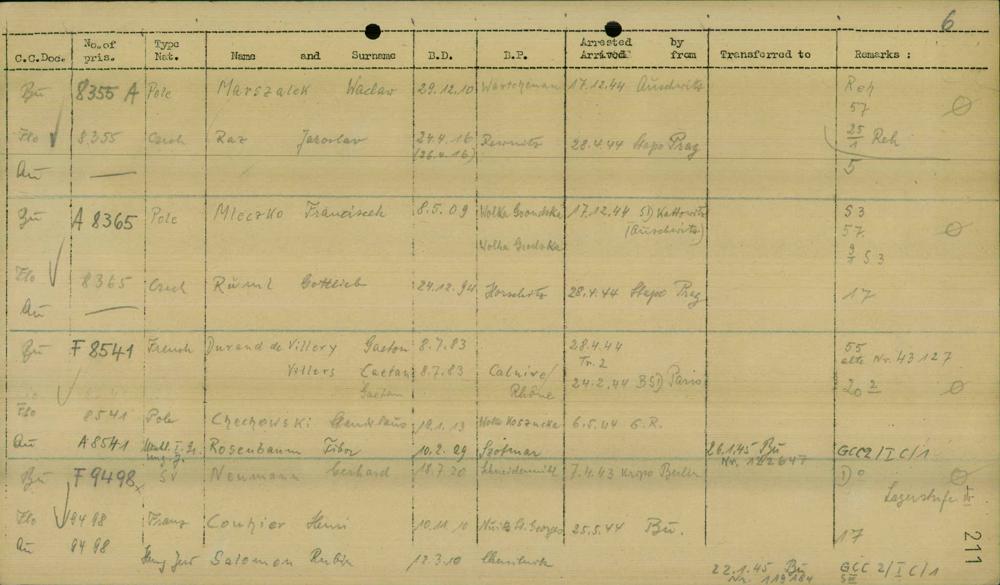 6
C.C.Doc. No. of pris. Type Nat. Name and Surname B.D. B.P. Arrested by Arrived from Transferred to Remarks :
Bu 8355 A Pole Marszalek Waclaw 29.12.10 17.12.44 Auschwitz Reh
57
Flo 8355 Czech Raz Jaroslav 24.4.16 28.4.44 Stapo Prag 25/1 Reh
(26.4.16)
Au — 5
Bu A 8365 Pole Mleczko Franciszek 8.5.09 Wolka Grondzka 17.12.44 Kattowitz S3
(Auschwitz) 57
Wolka Grodzka S3
Flo 8365 Czech Gottlieb 24.12.94 Horschitz 28.4.44 Stapo Prag 17
Au —
Bu F 8541 French Durand de Villery Gaeton 8.7.83 28.4.44 55
Tr. 2 alte Nr. 43127
Villers Caetan 8.7.83 Caluire/ 24.2.44 Paris 20 2
Gaetan Rhône
Flo 8541 Pole Chechowski Stanislaus 19.1.13 6.5.44 G.R.
Au A8541 Rosenbaum Tibor 10.2.29 Szatmar 26.1.45 Bu GCC2/I C/1
Nr. 122647
Bu F 9498 SV Neumann Gerhard 18.7.20 Schneidemühl 7.4.43 Kripo Berlin
Lagerstufe
Flo 9498 Franz Henri 10.11.10 Nuits St. Georges 25.5.44 Bu. 17
Au 9498 Ung Jud Salomon Rubin 12.3.10 22.1.45 Bu GCC 2/I C/1
Nr. 119184
211